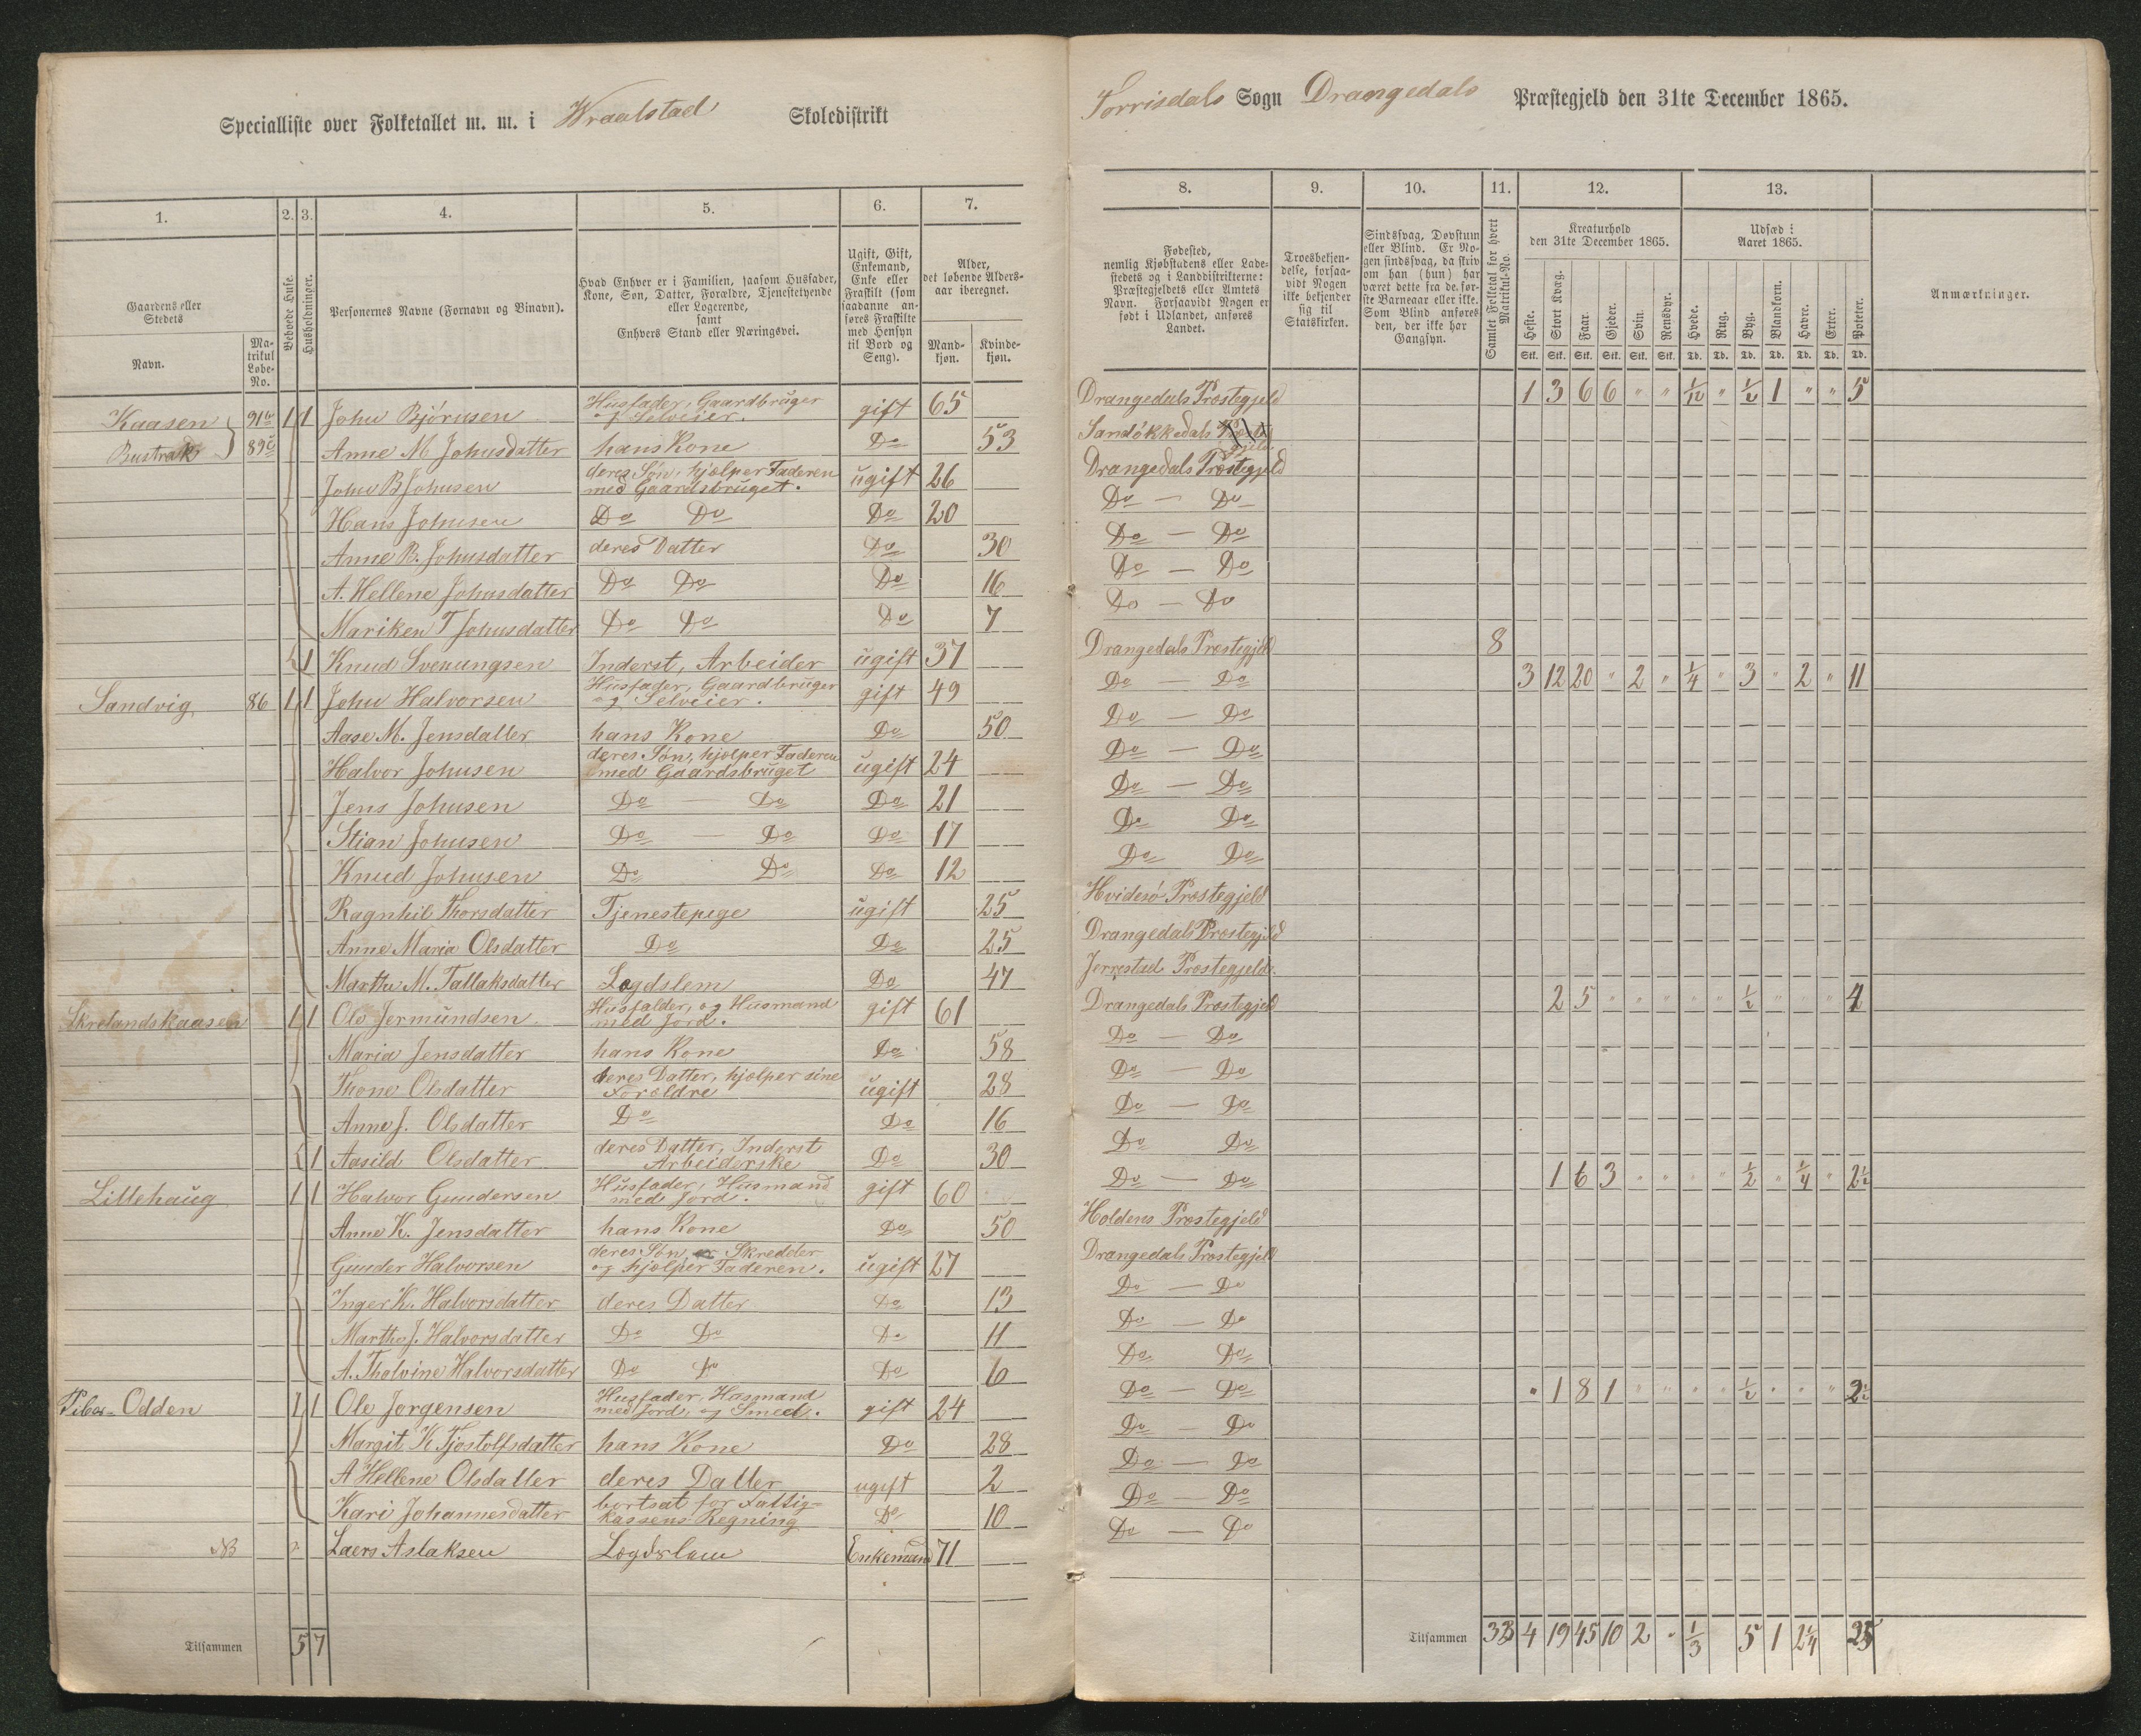 Specialliste over Folketallet m. m. i Wraalstad Skoledistrikt
1. 2. 3. 4. 5. 6. 7.
Gaardens eller Stedets
Navn.
Matrikul Løbe-No.
Beboede Huse.
Husholdninger.
Personernes Navne (Fornavn og Binavn).
Hvad Enhver er i Familien, saasom Husfader, Kone, Søn, Datter, Forældre, Tjenestetyende eller Logerende, samt Enhvers Stand eller Næringsvei.
Ugift, Gift, Enkemand, Enke eller Fraskilt (som saadanne anføres Fraskilte med Hensyn til Bord og Seng).
Alder, det løbende Alders-aar iberegnet.
Mand-kjøn.
Kvinde-kjøn.
Kaasen 91 1 1 John Bjørnsen Husfader, Gaardbruger og Selveier. gift 65
Bustrak 89 Anne M Johnsdatter hans Kone Do 53
John B Johnsen deres Søn, hjælper Faderen med Gaardsbruget. ugift 26
Hans Johnsen Do Do Do 20
Anne B. Johnsdatter deres Datter Do 30
A. Hellene Johnsdatter Do Do Do 16
Mariken T Johnsdatter Do Do Do 7
1 Knud Svenungsen Inderst, Arbeider ugift 37
Sandvig 86 1 1 John Halvorsen Husfader, Gaardbruger og Selveier. gift 49
Aase M. Jensdatter hans Kone Do 50
Halvor Johnsen deres Søn, hjælper Faderen med Gaardsbruget ugift 24
Jens Johnsen Do — Do Do 21
Stian Johnsen Do — Do Do 17
Knud Johnsen Do Do Do 12
Ragnhil Thorsdatter Tjenestepige ugift 25
Anne Maria Olsdatter Do Do 25
Marthe M. Tallaksdatter Lægdslem Do 47
Skrelandskaasen 1 1 Ole Jermundsen Husfalder, og Husmand med Jord. gift 61
Maria Jensdatter hans Kone Do 58
Thone Olsdatter deres Datter, hjælper sine Forældre ugift 28
Anne J. Olsdatter Do Do 16
1 Aasild Olsdatter deres Datter, Inderst Arbeiderske Do 30
Lillehaug 1 1 Halvor Gundersen Husfader, Husmand med Jord. gift 60
Anne K. Jensdatter hans Kone Do 50
Gunder Halvorsen deres Søn, er Skredder og hjælper Faderen. ugift 27
Inger K. Halvorsdatter deres Datter Do 13
Marthe J. Halvorsdatter Do Do Do 11
A. Tholvine Halvorsdatter Do Do Do 6
Odden 1 1 Ole Jørgensen Husfader, Husmand med Jord, og Smed. gift 24
Margit K Tjostolfsdatter hans Kone Do 28
A Hellene Olsdatter deres Datter ugift 2
Kari Johannesdatter bortsat for Fattig= kassens Regning Do 10
NB Laers Aslaksen Lægdslem Enkemand 71
Tilsammen 5 7
Torrisdals Sogn Drangedals Præstegjeld den 31te December 1865.
8. 9. 10. 11. 12. 13.
Fødested, nemlig Kjøbstadens eller Ladestedets og i Landdistrikterne: Præstegjeldets eller Amtets Navn. Forsaavidt Nogen er født i Udlandet, anføres Landet.
Troesbekjendelse, forsaavidt Nogen ikke bekjender sig til Statskirken.
Sindssvag, Døvstum eller Blind. Er Nogen sindssvag, da skriv om han (hun) har været dette fra de første Barneaar eller ikke. Som Blind anføres den, der ikke har Gangsyn.
Samlet Folketal for hvert Matrikul-No.
Kreaturhold den 31te December 1865.
Heste. Stort Kvæg. Faar. Gjeder. Svin. Rensdyr.
Stk. Stk. Stk. Stk. Stk. Stk.
Udsæd i Aaret 1865.
Hvede. Rug. Byg. Blandkorn. Havre. Erter. Poteter.
Td. Td. Td. Td. Td. Td. Td.
Anmærkninger.
Drangedals Præstegjeld 1 3 6 6 " " 1/12 " 1/2 1 " " 5
Sandøkkedals Præstegjeld
Drangedals Præstegjeld
Do — Do
Do — Do
Do — Do
Do — Do
Drangedals Præstegjeld 8
Do — Do 3 12 20 " 2 " 1/4 " 3 " 2 " 11
Do — Do
Do — Do
Do — Do
Do Do
Do Do
Hvidesø Præstegjeld
Drangedals Præstegjeld
Jerrestad Præstegjeld.
Drangedals Præstegjeld 2 5 " " " " " 1/2 " " " 4
Do — Do
Do — Do
Do — Do
Do Do
Do — Do 1 6 3 " " " " 1/2 " 1/4 " 2 1/2
Holdens Præstegjeld
Drangedals Præstegjeld
Do — Do
Do — Do
Do Do
Do — Do " 1 8 1 " " " " 1/2 " " " 2 1/2
Do — Do
Do — Do
Do — Do
Do — Do
Tilsammen 33 4 19 45 10 2 " 1/3 5 1 2 1/4 25